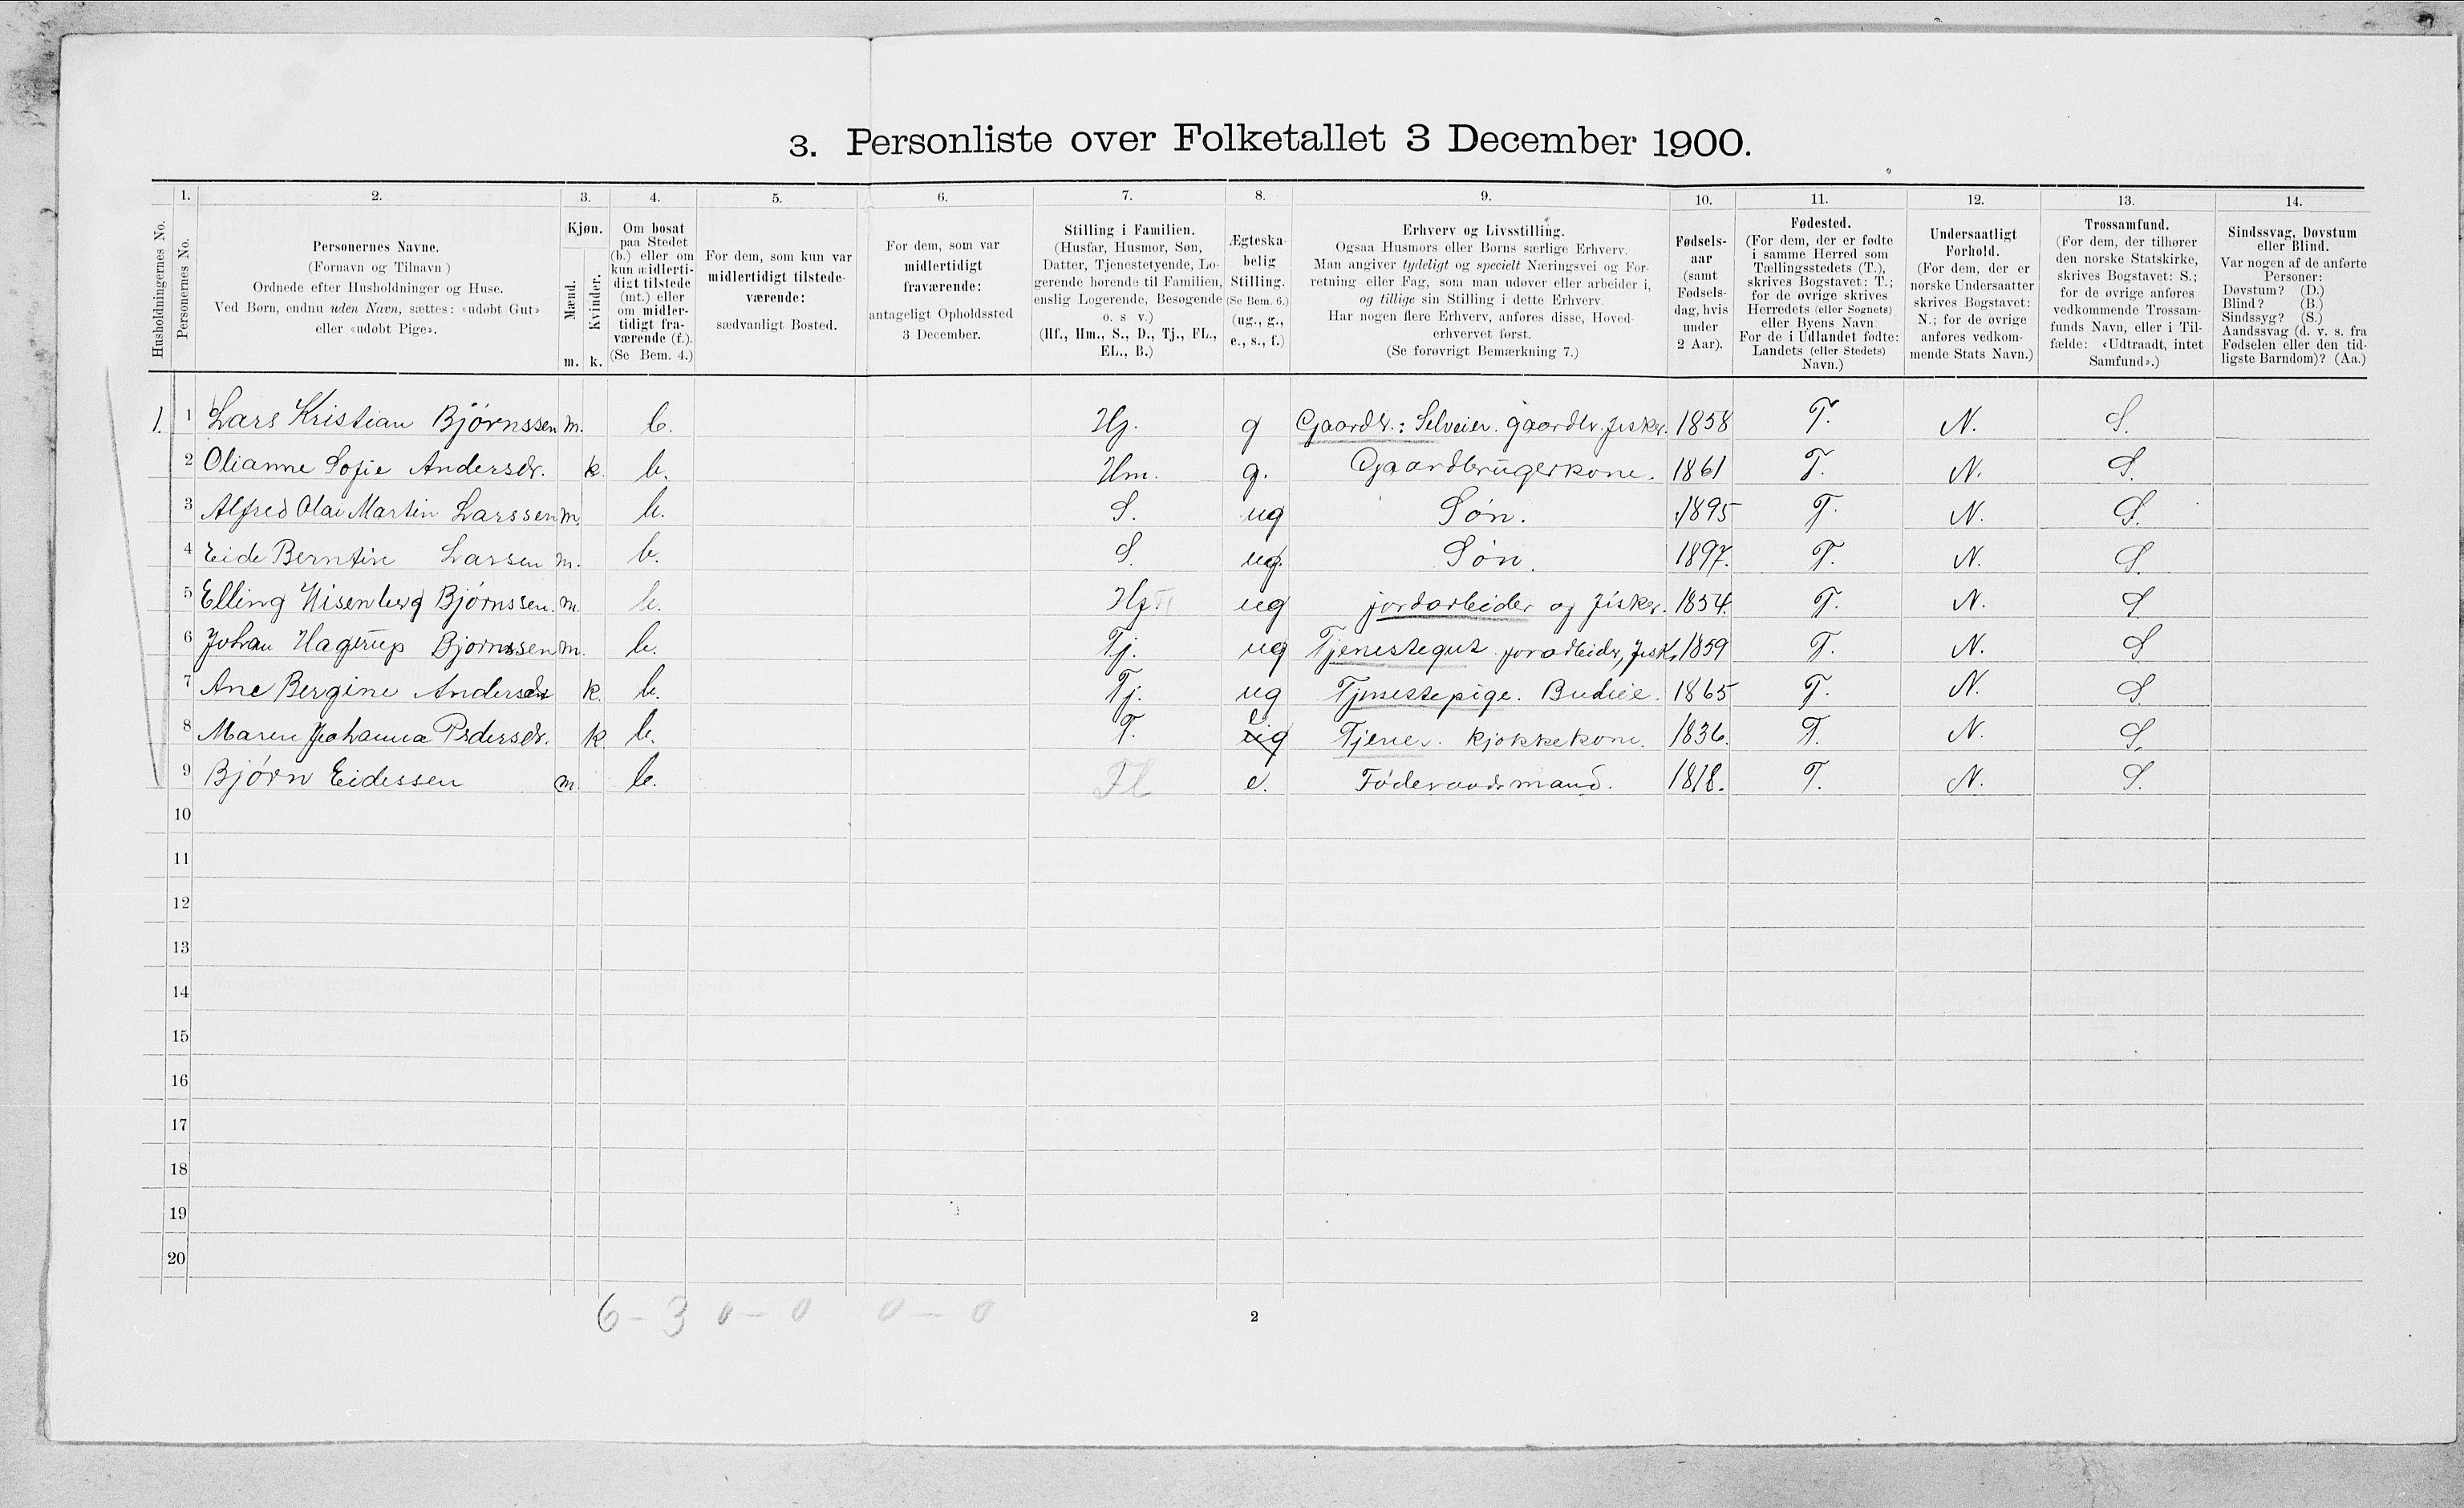 3. Personliste over Folketallet 3 December 1900.
Husholdningernes No.
1. Personernes No.
2. Personernes Navne.
(Fornavn og Tilnavn)
Ordnede efter Husholdninger og Huse.
Ved Børn, endnu uden Navn, sættes: «udøbt Gut»
eller «udøbt Pige».
3. Kjøn.
Mænd. Kvinder.
m. k.
4. Om bosat
paa Stedet
(b.) eller om
kun midlerti-
digt tilstede
(mt.) eller
om midler-
tidigt fra-
værende (f.).
(Se Bem. 4.)
5. For dem, som kun var
midlertidigt tilstede-
værende:
sædvanligt Bosted.
6. For dem, som var
midlertidigt
fraværende:
antageligt Opholdssted
3 December.
7. Stilling i Familien.
(Husfar, Husmor, Søn,
Datter, Tjenestetyende, Lo-
gerende hørende til Familien,
enslig Logerende, Besøgende
o. s v.)
(Hf., Hm., S., D., Tj., FL.,
EL., B.)
8. Ægteska-
belig
Stilling.
(Se Bem. 6.)
(ug., g.,
e., s., f.)
9. Erhverv og Livsstilling.
Ogsaa Husmors eller Børns særlige Erhverv.
Man angiver tydeligt og specielt Næringsvei og For-
retning eller Fag, som man udøver eller arbeider i,
og tillige sin Stilling i dette Erhverv.
Har nogen flere Erhverv, anføres disse, Hoved-
erhvervet først.
(Se forøvrigt Bemærkning 7.)
10. Fødsels-
aar
(samt
Fødsels-
dag, hvis
under
2 Aar).
11. Fødested.
(For dem, der er fødte
i samme Herred som
Tællingsstedets (T.),
skrives Bogstavet: T.;
for de øvrige skrives
Herredets (eller Sognets)
eller Byens Navn
For de i Udlandet fødte:
Landets (eller Stedets)
Navn.)
12. Undersaatligt
Forhold.
(For dem, der er
norske Undersaatter
skrives Bogstavet:
N.; for de øvrige
anføres vedkom-
mende Stats Navn.)
13. Trossamfund.
(For dem, der tilhører
den norske Statskirke,
skrives Bogstavet: S.;
for de øvrige anføres
vedkommende Trossam-
funds Navn, eller i Til-
fælde: «Udtraadt, intet
Samfund».)
14. Sindssvag, Døvstum
eller Blind.
Var nogen af de anførte
Personer:
Døvstum? (D.)
Blind? (B.)
Sindssyg? (S.)
Aandssvag (d. v. s. fra
Fødselen eller den tid-
ligste Barndom)? (Aa.)
1. 1 Lars Kristian Bjørnssen m. b. Hf. g Gaardbr.: Selveier. gaardbr. fisker. 1858 T. N. S.
2 Olianne Sofie Andersdr. k. b. Hm. g. Gaardbrugerkone. 1861 T. N. S.
3 Alfred Olai Martin Larssen m. b. S. ug Søn. 1895 T. N. S.
4 Eide Berntin Larsen m. b. S. ug. Søn. 1897. T. N. S.
5 Elling Hisenberg Bjørnssen. m. b. Hf ug jordarbeider og fisker. 1854. T. N. S
6 Johan Hagerup Bjørnssen m. b. Tj. ug Tjenestegut jorarbeider, fisk. 1859 T. N. S
7 Ane Bergine Andersdr k. b. Tj. ug Tjenestepige. Budeie. 1865 T. N. S.
8 Maren Johanna Pedersdr. k b. T. e ug Tjener. kjøkkekone. 1836. T. N. S.
9 Bjørn Eidessen m. b. Fl e. Føderaadsmand. 1818. T. N. S.
10
11
12
13
14
15
16
17
18
19
20
6 - 3 0 - 0 0 - 0
2